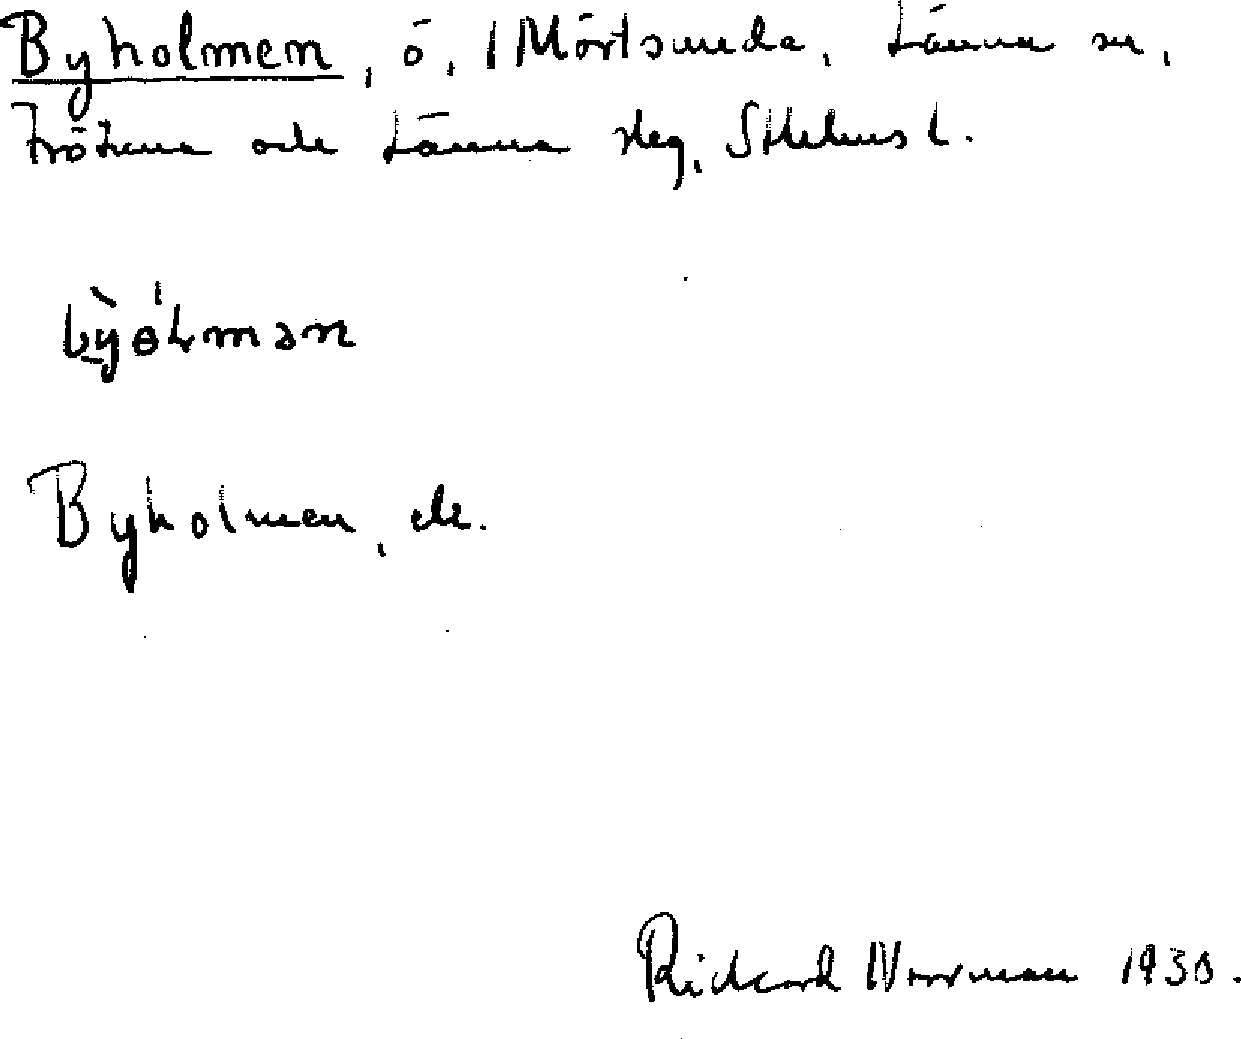 Byholmen, ö, i Mörtsunda, Länna sn,
Frötuna och Länna slg, Sthlms l.
Byholmen, ek.
Richard Norrman 1930.